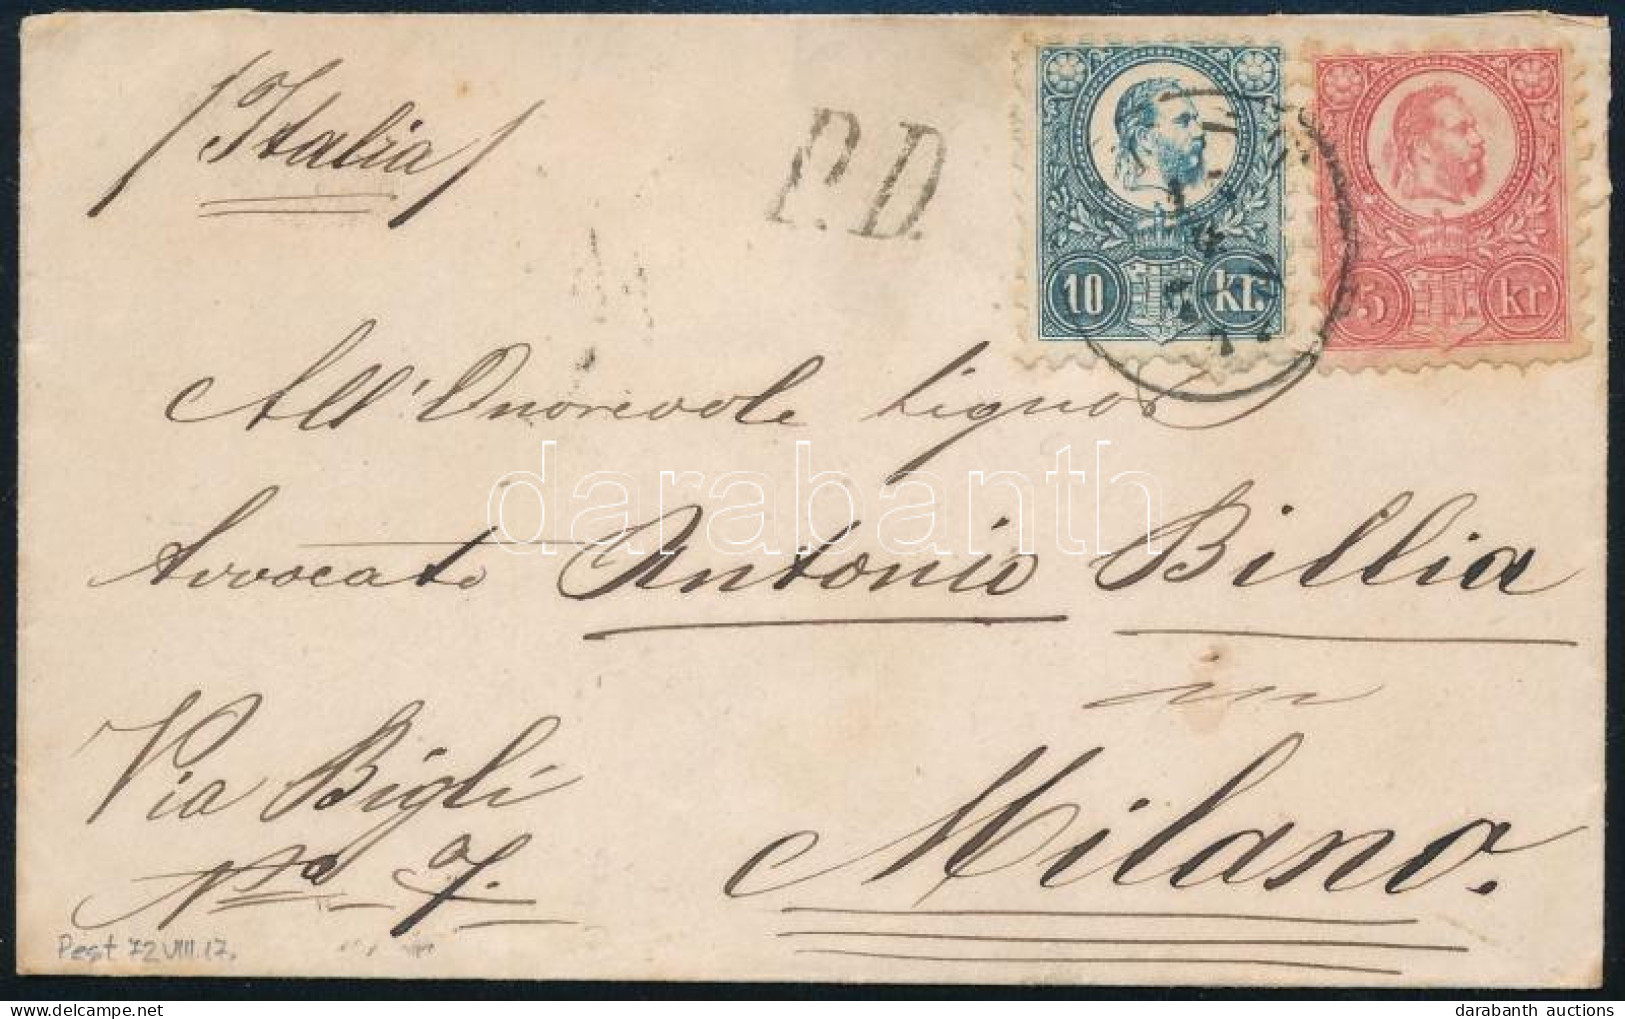 /Italia/
P.D.
10 kr.
5 kr
All'Onorevole Signor
Avvocato Antonio Billia
in
Milano.
Via Bigli
No 7.
Pest 72 VIII.17.
darabanth
darabanth auctions